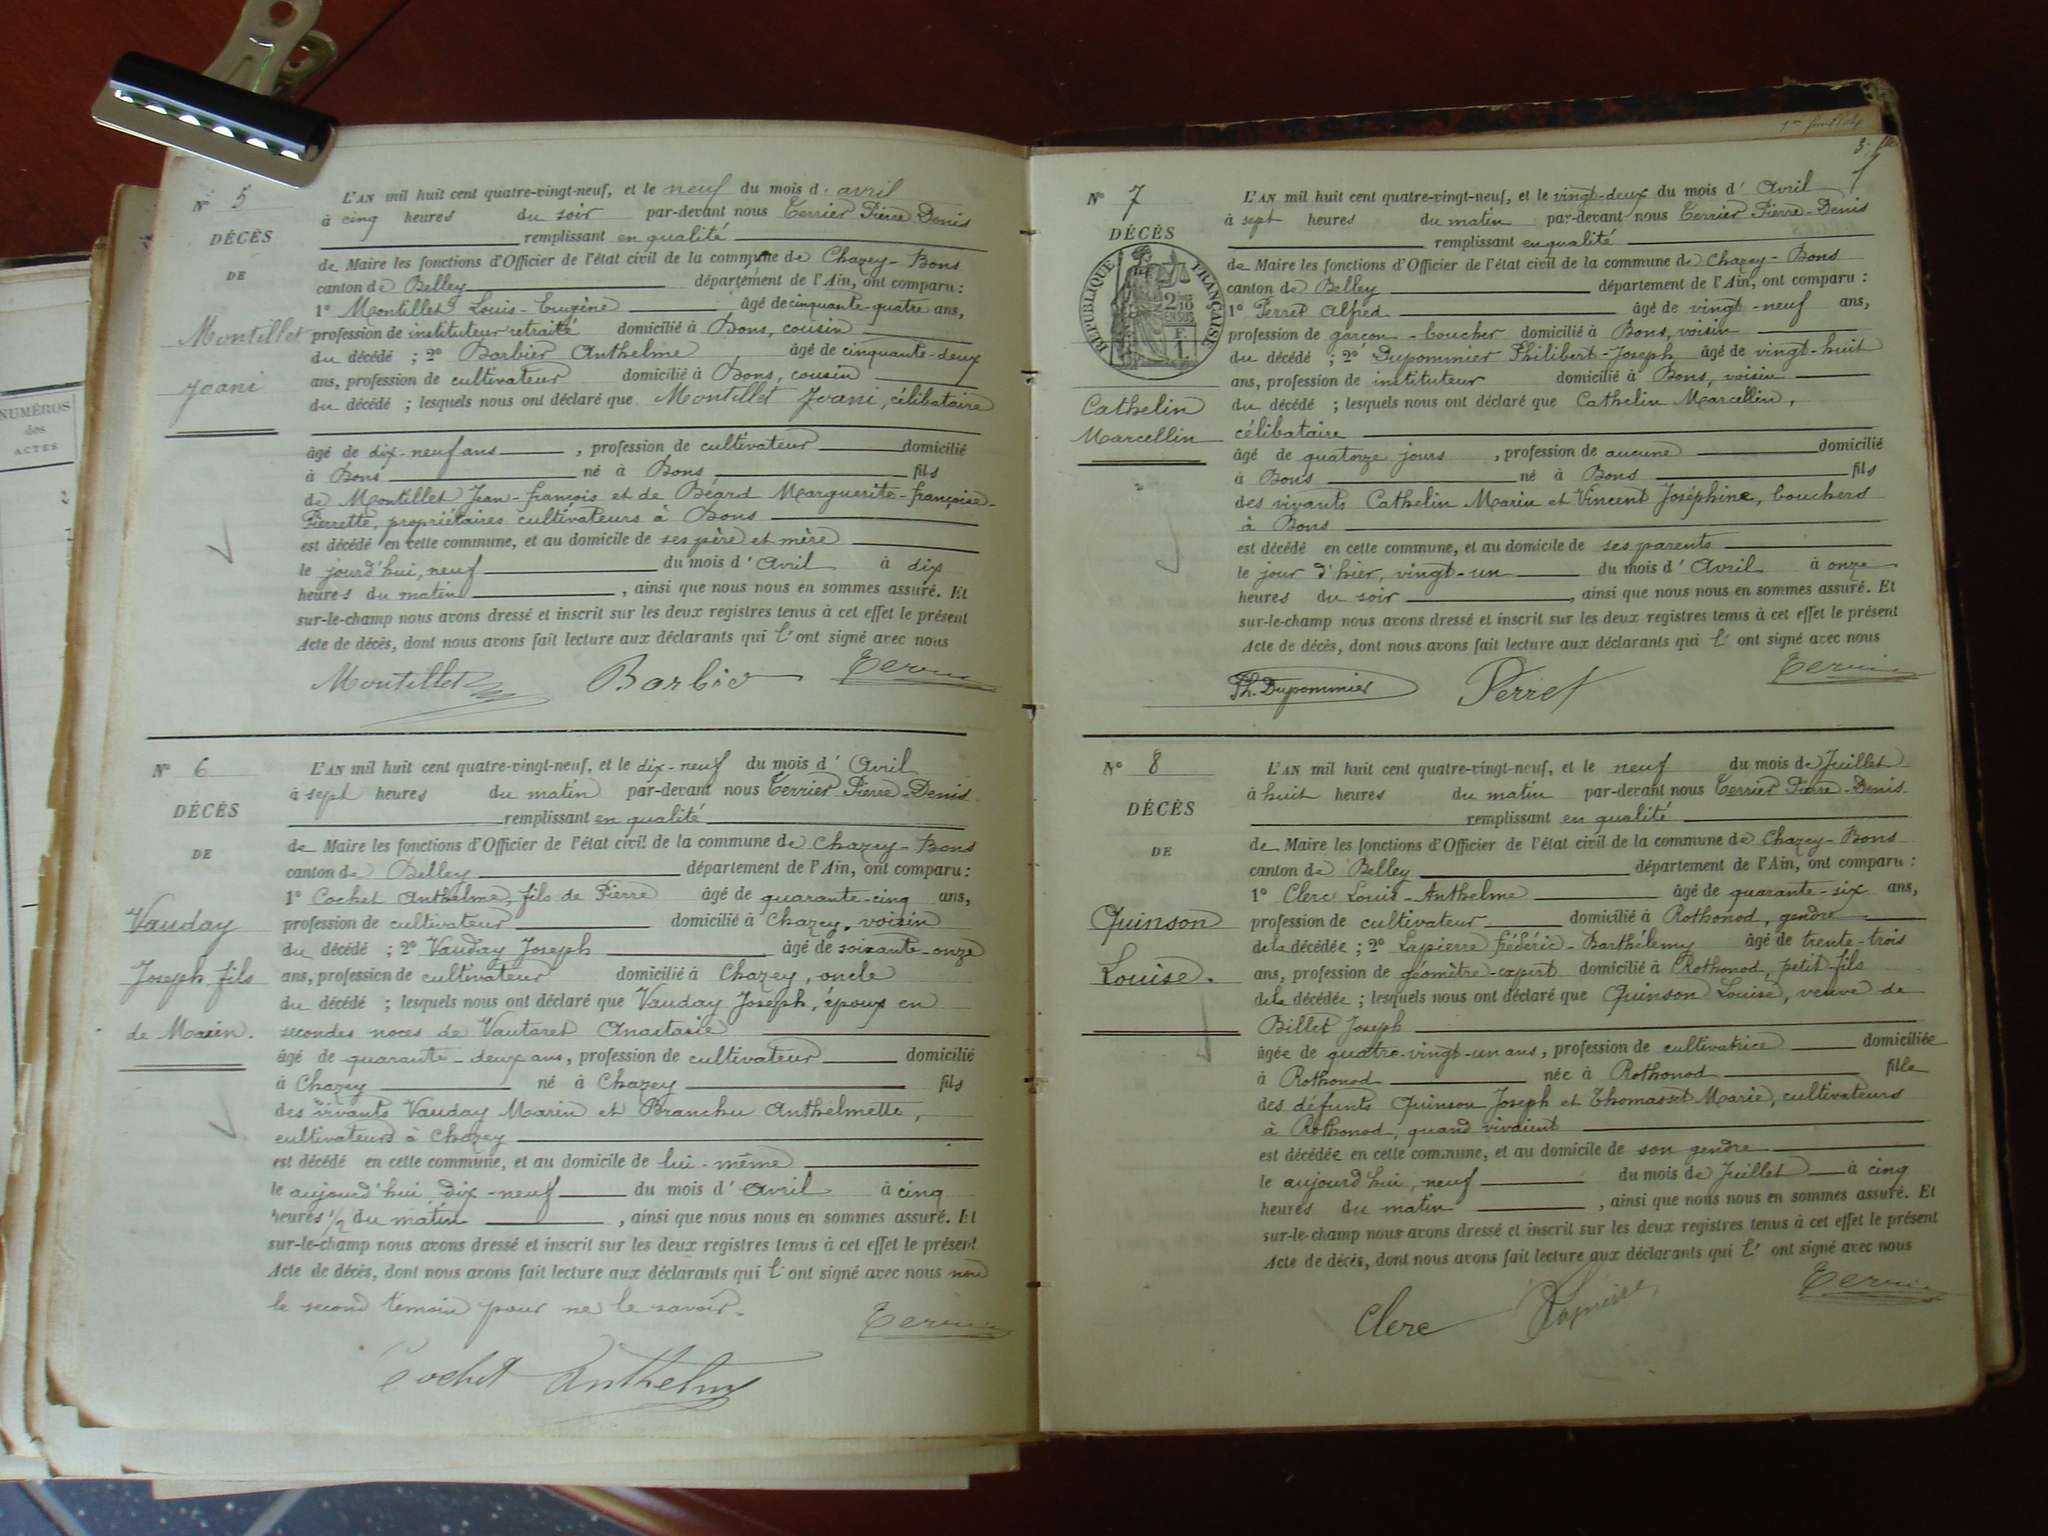 NUMÉROS
des
ACTES
2
N° 5
DÉCÈS
DE
Montillet
Joani
L'AN mil huit cent quatre-vingt-neuf, et le neuf du mois d'avril
à cinq heures du soir par-devant nous Terrier Pierre-Denis
remplissant en qualité
de Maire les fonctions d'Officier de l'état civil de la commune de Chazey-Bons
canton de Belley département de l'Ain, ont comparu :
1° Montillet Louis-Eugène âgé de cinquante-quatre ans,
profession de instituteur retraité domicilié à Bons, cousin
du décédé ; 2° Barbier Anthelme âgé de cinquante-deux
ans, profession de cultivateur domicilié à Bons, cousin
du décédé ; lesquels nous ont déclaré que Montillet Joani, célibataire
âgé de dix-neuf ans , profession de cultivateur domicilié
à Bons né à Bons fils
de Montillet Jean-françois et de Béard Marguerite-françoise-
Pierrette, propriétaires cultivateurs à Bons
est décédé en cette commune, et au domicile de ses père et mère
le jourd'hui, neuf du mois d'Avril à dix
heures du matin , ainsi que nous nous en sommes assuré. Et
sur-le-champ nous avons dressé et inscrit sur les deux registres tenus à cet effet le présent
Acte de décès, dont nous avons fait lecture aux déclarants qui l'ont signé avec nous
Montillet Barbier Terrier
N° 6
DÉCÈS
DE
Vauday
Joseph fils
de Marin.
L'AN mil huit cent quatre-vingt-neuf, et le dix-neuf du mois d'Avril
à sept heures du matin par-devant nous Terrier Pierre-Denis
remplissant en qualité
de Maire les fonctions d'Officier de l'état civil de la commune de Chazey-Bons
canton de Belley département de l'Ain, ont comparu :
1° Cochet Anthelme, fils de Pierre âgé de quarante-cinq ans,
profession de cultivateur domicilié à Chazey, voisin
du décédé ; 2° Vauday Joseph âgé de soixante-onze
ans, profession de cultivateur domicilié à Chazey, oncle
du décédé ; lesquels nous ont déclaré que Vauday Joseph, époux en
secondes noces de Vautaret Anastasie
âgé de quarante-deux ans, profession de cultivateur domicilié
à Chazey né à Chazey fils
des vivants Vauday Marin et Branchu Anthelmette,
cultivateurs à Chazey
est décédé en cette commune, et au domicile de lui-même
le aujourd'hui dix-neuf du mois d'Avril à cinq
heures 1/2 du matin , ainsi que nous nous en sommes assuré. Et
sur-le-champ nous avons dressé et inscrit sur les deux registres tenus à cet effet le présent
Acte de décès, dont nous avons fait lecture aux déclarants qui l'ont signé avec nous non
le second témoin pour ne le savoir.
Terrier
Cochet Anthelme
1er feuillet
3.
N° 7
DÉCÈS
RÉPUBLIQUE FRANÇAISE
Cathelin
Marcellin
L'AN mil huit cent quatre-vingt-neuf, et le vingt-deux du mois d'Avril
à sept heures du matin par-devant nous Terrier Pierre-Denis
remplissant en qualité
de Maire les fonctions d'Officier de l'état civil de la commune de Chazey-Bons
canton de Belley département de l'Ain, ont comparu :
1° Perret Alfred âgé de vingt-neuf ans,
profession de garçon-boucher domicilié à Bons, voisin
du décédé ; 2° Dupommier Philibert-Joseph âgé de vingt-huit
ans, profession de instituteur domicilié à Bons, voisin
du décédé ; lesquels nous ont déclaré que Cathelin Marcellin,
célibataire
âgé de quatorze jours , profession de aucune domicilié
à Bons né à Bons fils
des vivants Cathelin Marin et Vincent Joséphine, bouchers
à Bons
est décédé en cette commune, et au domicile de ses parents
le jour d'hier, vingt-un du mois d'Avril à onze
heures du soir , ainsi que nous nous en sommes assuré. Et
sur-le-champ nous avons dressé et inscrit sur les deux registres tenus à cet effet le présent
Acte de décès, dont nous avons fait lecture aux déclarants qui l'ont signé avec nous
Ph. Dupommier Perret Terrier
N° 8
DÉCÈS
DE
Quinson
Louise.
L'AN mil huit cent quatre-vingt-neuf, et le neuf du mois de Juillet
à huit heures du matin par-devant nous Terrier Pierre-Denis
remplissant en qualité
de Maire les fonctions d'Officier de l'état civil de la commune de Chazey-Bons
canton de Belley département de l'Ain, ont comparu :
1° Clerc Louis-Anthelme âgé de quarante-six ans,
profession de cultivateur domicilié à Rothonod, gendre
de la décédée ; 2° Lapierre frédéric-Barthélemy âgé de trente-trois
ans, profession de géomètre-expert domicilié à Rothonod, petit-fils
de la décédée ; lesquels nous ont déclaré que Quinson Louise, veuve de
Billet Joseph
âgée de quatre-vingt-un ans, profession de cultivatrice domiciliée
à Rothonod née à Rothonod fille
des défunts Quinson Joseph et Thomasset Marie, cultivateurs
à Rothonod, quand vivaient
est décédée en cette commune, et au domicile de son gendre
le aujourd'hui, neuf du mois de Juillet à cinq
heures du matin , ainsi que nous nous en sommes assuré. Et
sur-le-champ nous avons dressé et inscrit sur les deux registres tenus à cet effet le présent
Acte de décès, dont nous avons fait lecture aux déclarants qui l'ont signé avec nous
Clerc Lapierre Terrier